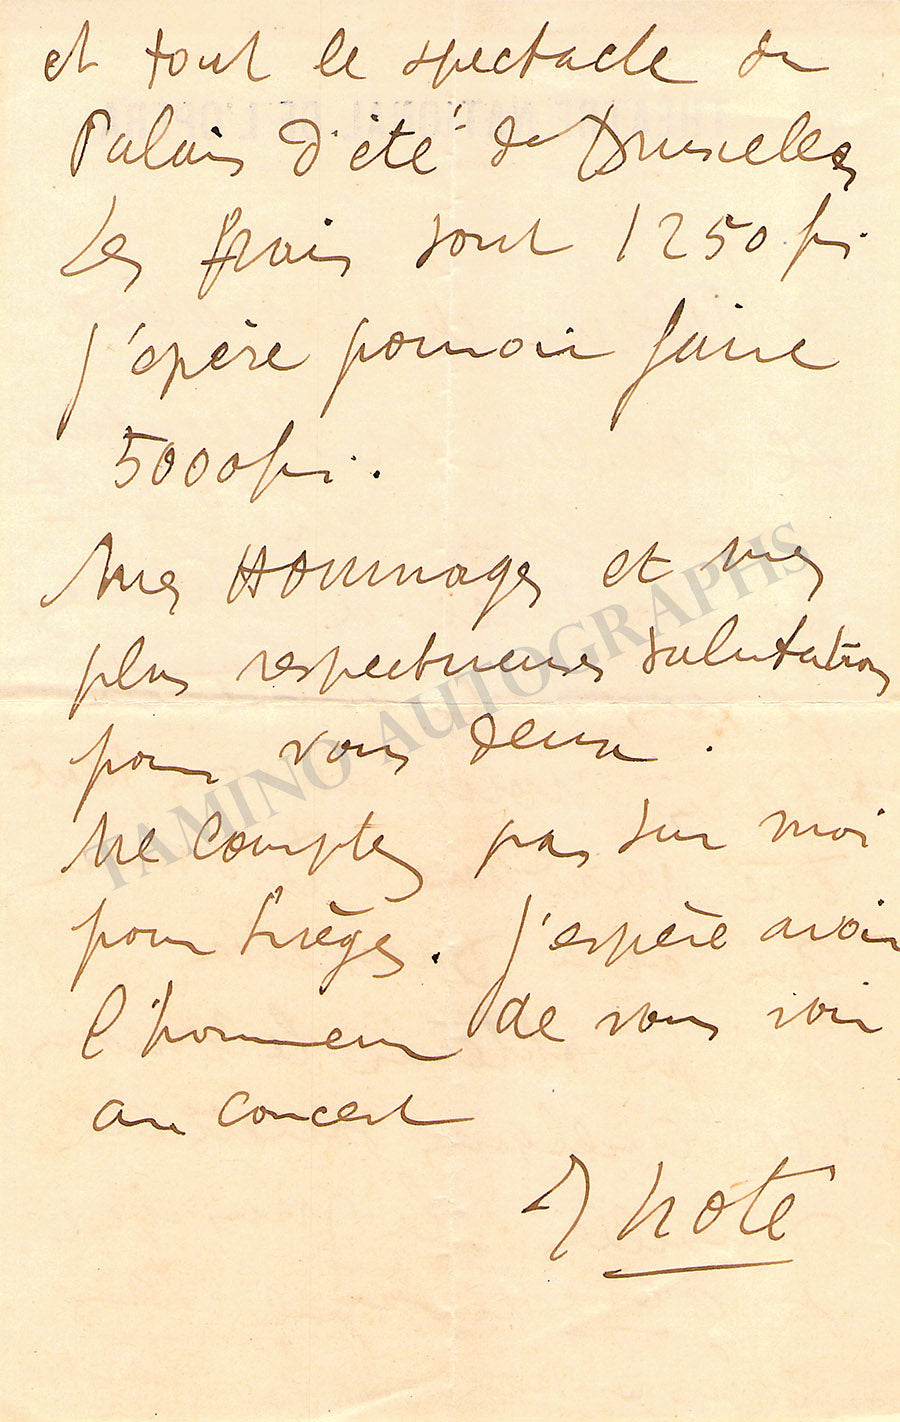 et tout le spectacle du
Palais d'été de Bruxelles
Les frais sont 1250 fr.
j'epère pouvoir faire
5000 fr.
Mes Hommages et mes
plus respectueuses salutations
pour vous deux.
Ne comptez pas sur moi
pour Liège. j'espère avoir
l'honneur de vous voir
au concert
J Noté
TAMINO AUTOGRAPHS